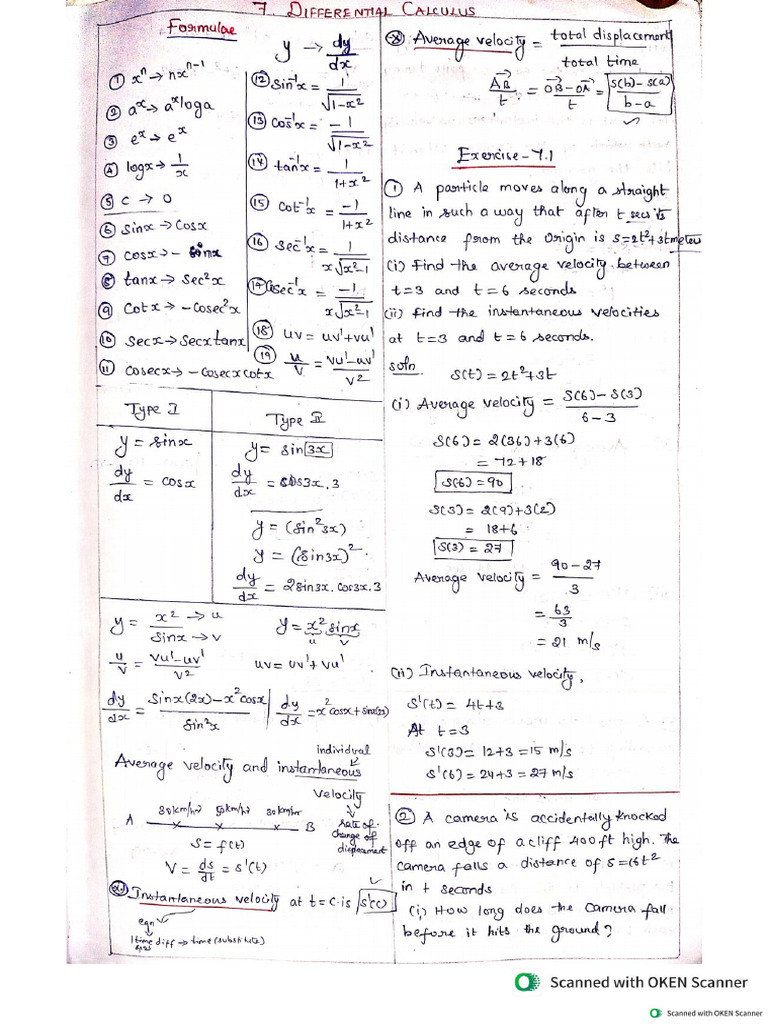 7. DIFFERENTIAL CALCULUS
Formulae
y → dy/dx
① xⁿ → nxⁿ⁻¹
② aˣ → aˣ log a
③ eˣ → eˣ
④ log x → 1/x
⑤ C → 0
⑥ sinx → cosx
⑦ cosx → - sinx
⑧ tanx → sec²x
⑨ cotx → -cosec²x
⑩ secx → secxtanx
⑪ cosecx → -cosecxcotx
⑫ sin⁻¹x = 1/√(1-x²)
⑬ cos⁻¹x = -1/√(1-x²)
⑭ tan⁻¹x = 1/(1+x²)
⑮ cot⁻¹x = -1/(1+x²)
⑯ sec⁻¹x = 1/(x√(x²-1))
⑰ cosec⁻¹x = -1/(x√(x²-1))
⑱ uv = uv'+vu'
⑲ u/v = (vu'-uv')/v²
Type I
y = sinx
dy/dx = cosx
Type II
y = sin 3x
dy/dx = cos3x.3
y = (sin²3x)
y = (sin3x)².
dy/dx = 2sin3x.cos3x.3
y = x² → u / sinx → v
u/v = (vu'-uv')/v²
dy/dx = (sinx(2x)-x²cosx)/sin²x
y = x² sinx
u v
uv = uv'+vu'
dy/dx = x²cosx+sinx(2x)
individual
Average velocity and instantaneous
velocity
80km/hr 50km/hr 30km/hr
A B
rate of
change of
displacement
S = f(t)
V = ds/dt = s'(t)
Instantaneous velocity at t=c is s'(c)
eqn
1time diff → time(substitute)
Average velocity = total displacement / total time
AB/t = (OB-OA)/t = (s(b)-s(a))/(b-a)
Exercise-7.1
① A particle moves along a straight
line in such a way that after t secs its
distance from the origin is S=2t²+3t meters
(i) Find the average velocity between
t=3 and t=6 seconds
(ii) find the instantaneous velocities
at t=3 and t=6 seconds.
soln.
S(t) = 2t²+3t
(i) Average velocity = (S(6)-S(3))/(6-3)
S(6) = 2(36)+3(6)
= 72+18
S(6) = 90
S(3) = 2(9)+3(2)
= 18+6
S(3) = 27
Average velocity = (90-27)/3
= 63/3
= 21 m/s
(ii) Instantaneous velocity,
S'(t) = 4t+3
At t=3
S'(3) = 12+3 = 15 m/s
S'(6) = 24+3 = 27 m/s
② A camera is accidentally knocked
off an edge of a cliff 400ft high. The
camera falls a distance of s=16t²
in t seconds
(i) How long does the camera fall
before it hits the ground?
Scanned with OKEN Scanner
Scanned with OKEN Scanner